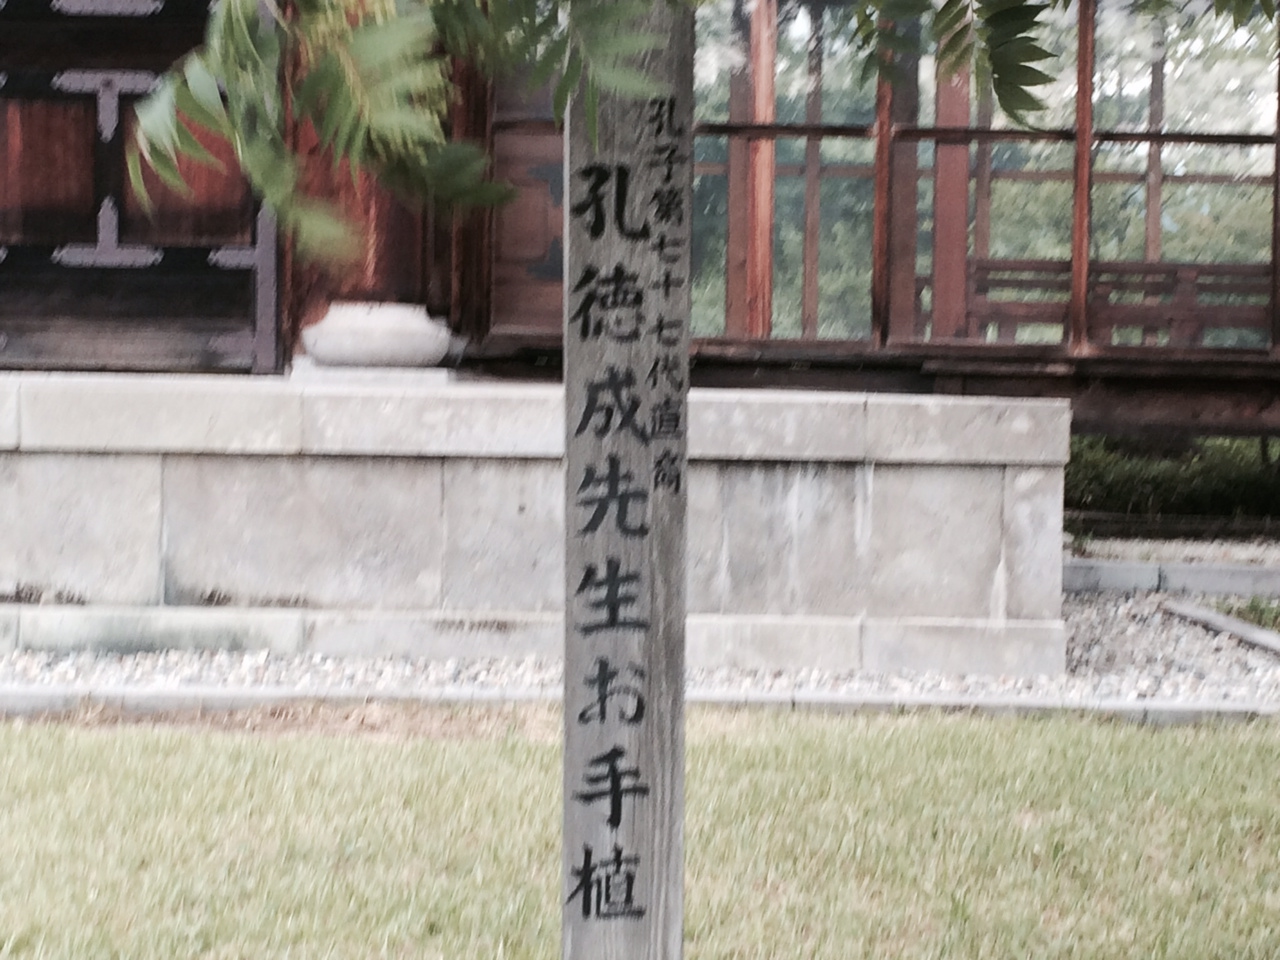 孔子第七十七代直裔
孔徳成先生お手植